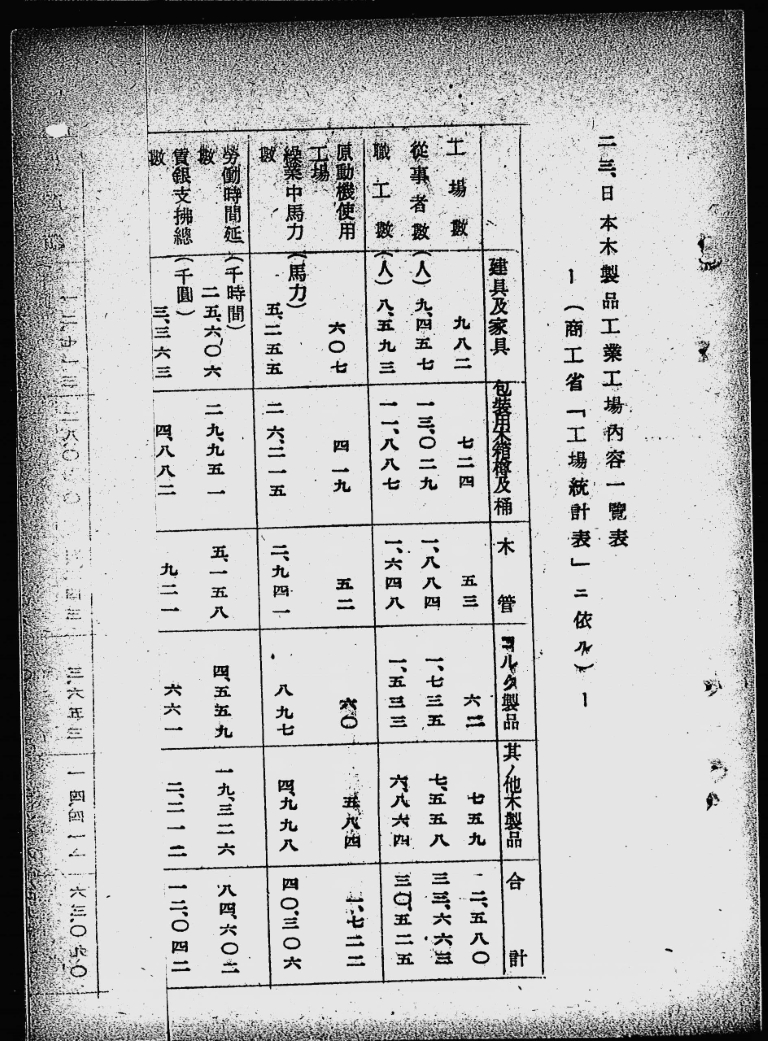 二三、日本木製品工業工場內容一覽表
ー(商工省「工場統計表」ニ依ル)ー
建具及家具 包裝用木箱樽及桶 木管 コルク製品 其ノ他木製品 合計
工場數 九八二 七二四 五三 六二 七五九 二、五八〇
從事者數(人) 九、四五七 一三、〇二九 一、八八四 一、七三五 七、五五八 三三、六六三
職工數(人) 八、五九三 一一、八八七 一、六四八 一、五三三 六、八六四 三〇、五二五
原動機使用
工場 六〇七 四一九 五二 六〇 五八四 一、七二二
繰業中馬力
數(馬力) 五、二五五 二六、二一五 二、九四一 八九七 四、九九八 四〇、三〇六
勞働時間延
數(千時間) 二五、六〇六 二九、九五一 五、一五八 四、五五九 一九、三二六 八四、六〇二
賃銀支拂總
數(千圓) 三、三六三 四、八八二 九二一 六六一 二、二一二 一二、〇四二